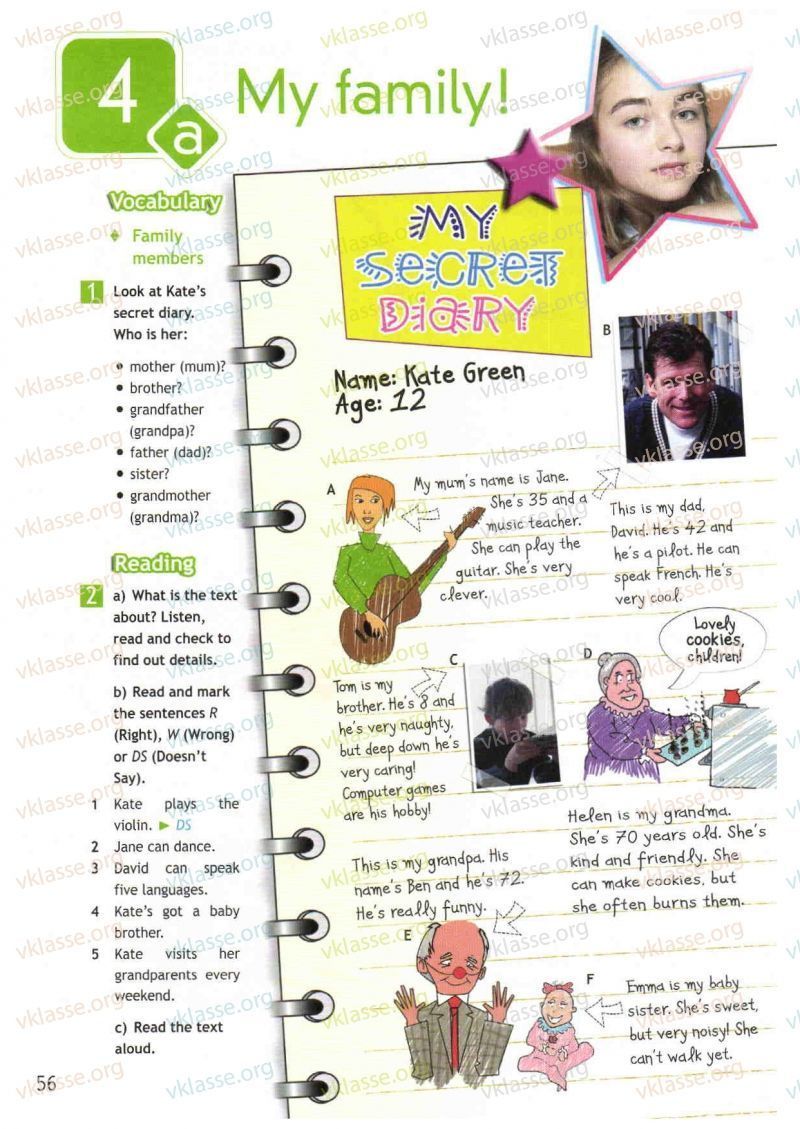 4
a
My family!
Vocabulary
Family
members
1 Look at Kate's
secret diary.
Who is her:
• mother (mum)?
• brother?
• grandfather
(grandpa)?
• father (dad)?
• sister?
• grandmother
(grandma)?
Reading
2 a) What is the text
about? Listen,
read and check to
find out details.
b) Read and mark
the sentences R
(Right), W (Wrong)
or DS (Doesn't
Say).
1 Kate plays the
violin. ► DS
2 Jane can dance.
3 David can speak
five languages.
4 Kate's got a baby
brother.
5 Kate visits her
grandparents every
weekend.
c) Read the text
aloud.
56
MY
SECRET
DIARY
Name: Kate Green
Age: 12
A
My mum's name is Jane.
She's 35 and a
music teacher.
She can play the
guitar. She's very
clever.
B
This is my dad,
David. He's 42 and
he's a pilot. He can
speak French. He's
very cool.
C
Tom is my
brother. He's 8 and
he's very naughty,
but deep down he's
very caring!
Computer games
are his hobby!
D
Lovely
cookies,
children!
Helen is my grandma.
She's 70 years old. She's
kind and friendly. She
can make cookies, but
she often burns them.
This is my grandpa. His
name's Ben and he's 72.
He's really funny.
E
F
Emma is my baby
sister. She's sweet,
but very noisy! She
can't walk yet.
vklasse.org